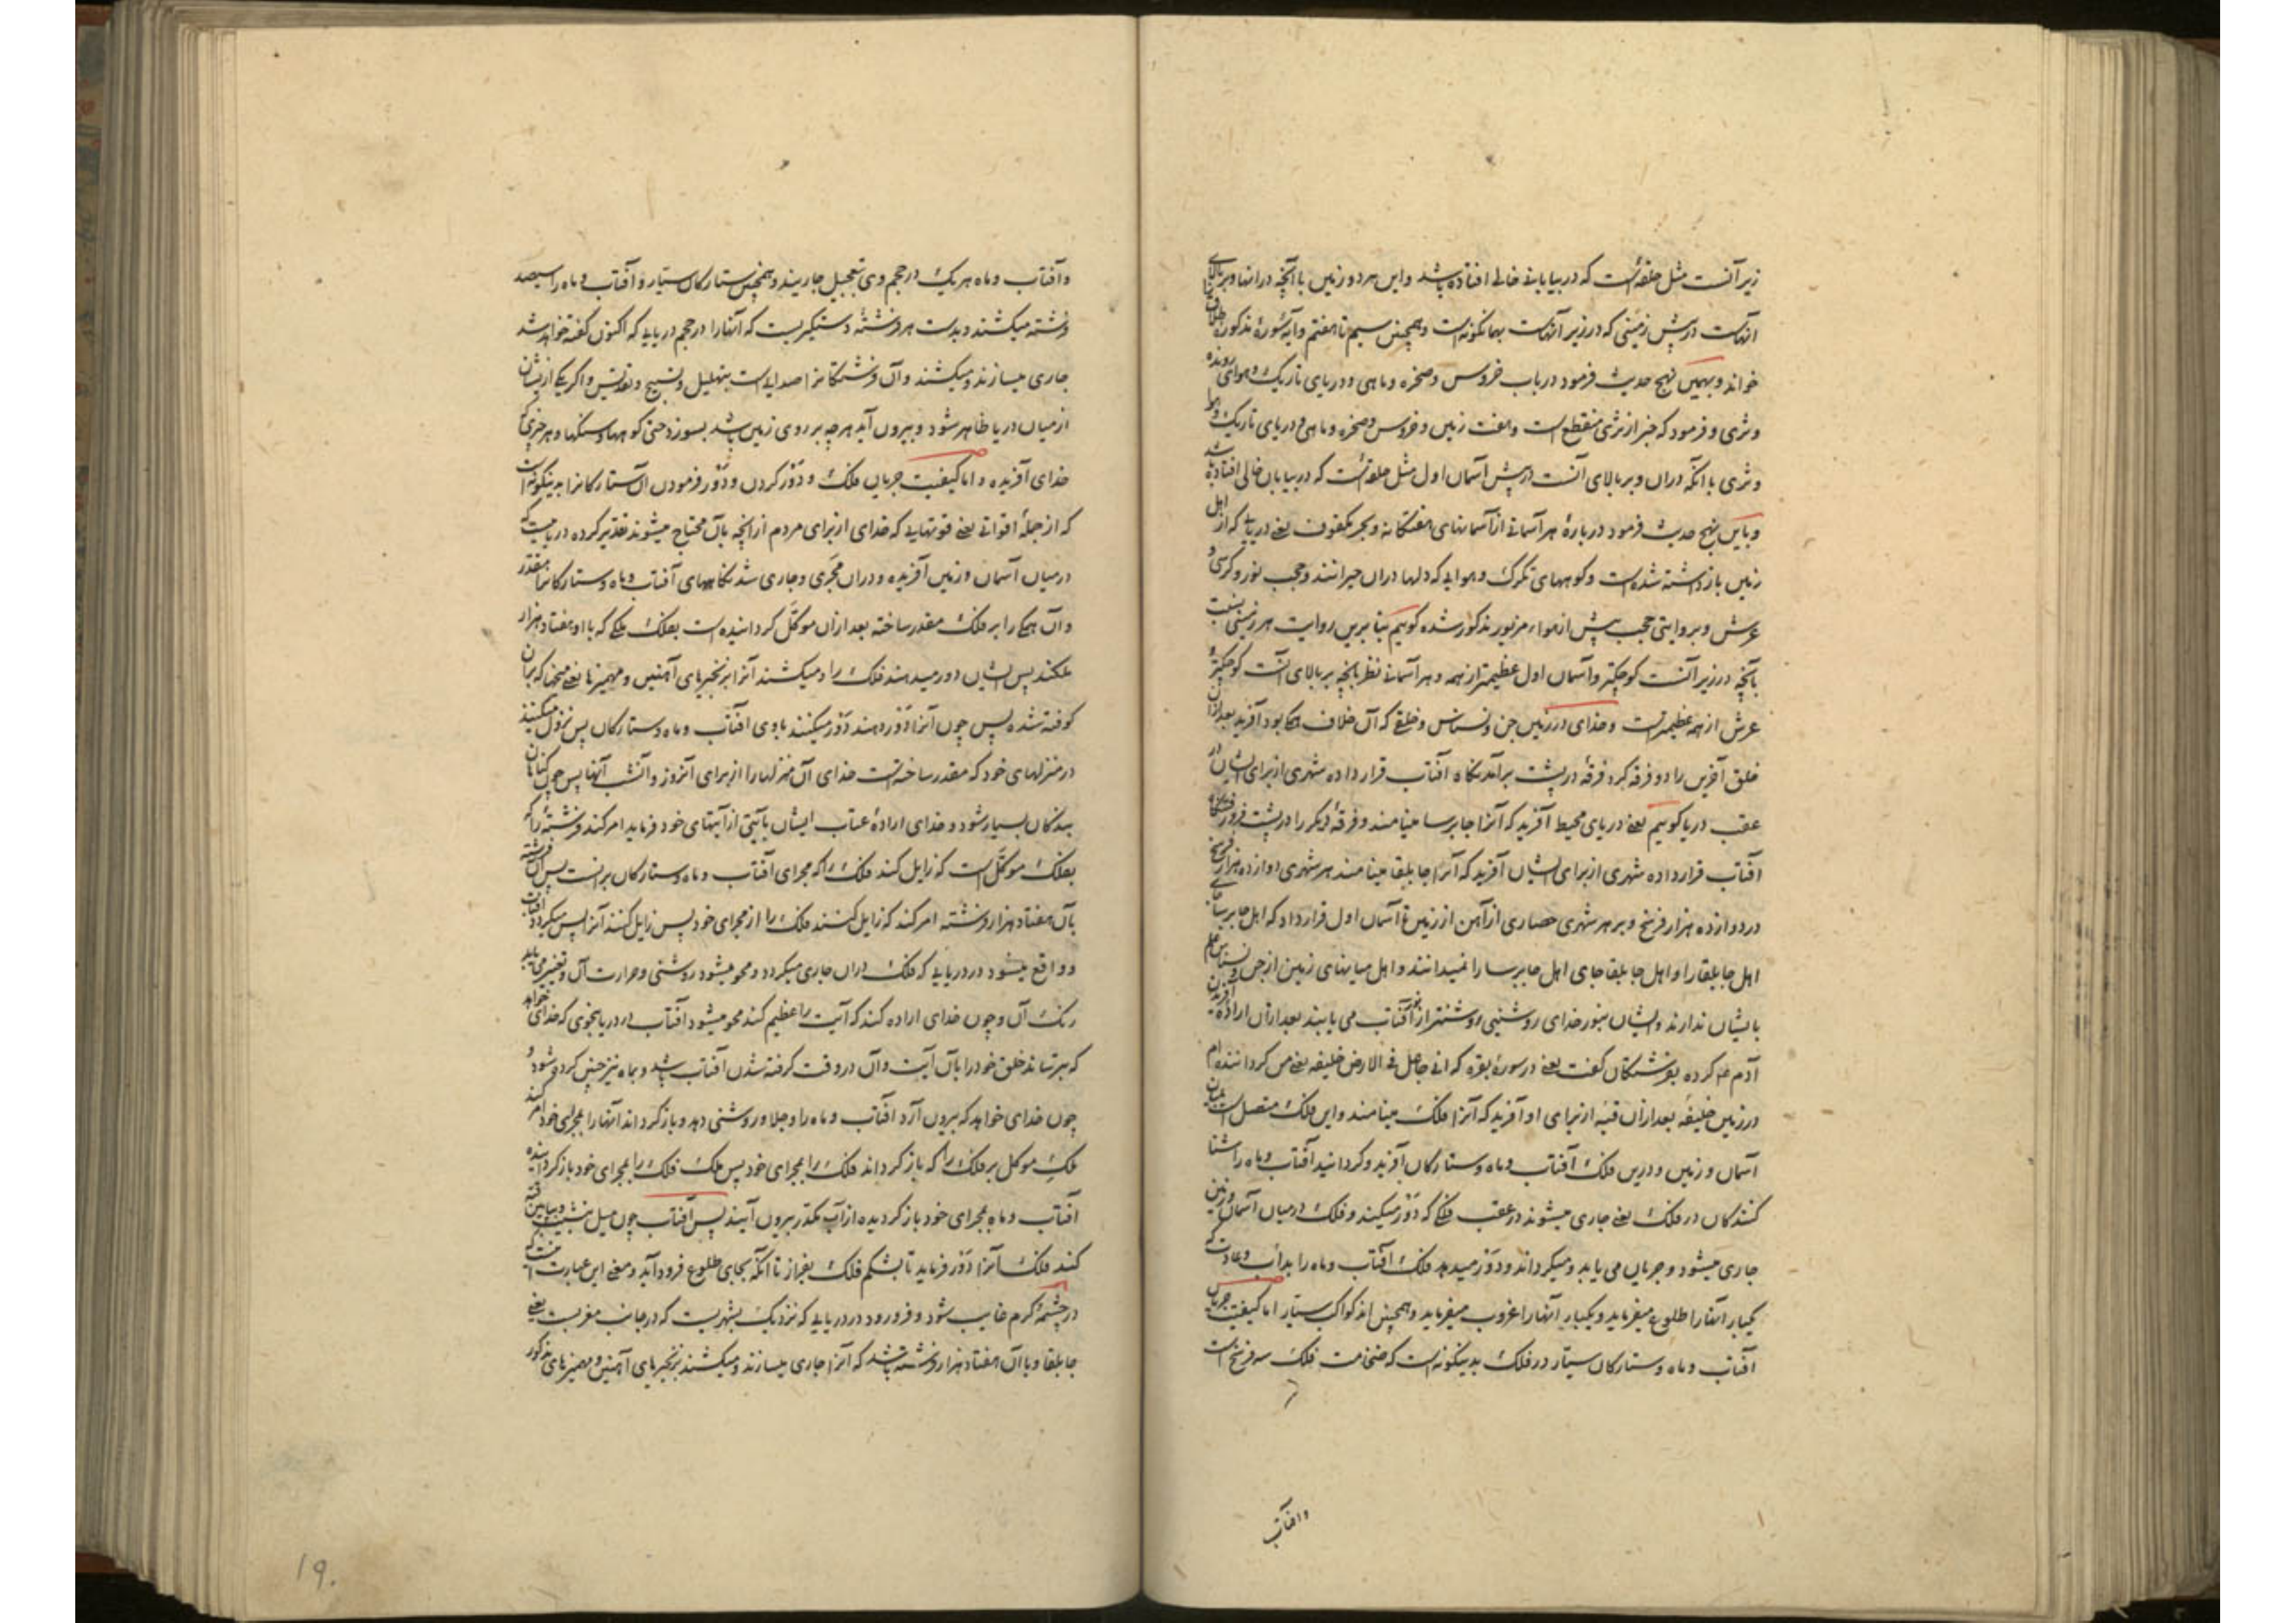 زیر آنست مثل حلقه‌ایست که در بیابانی خالی افتاده باشد و این هر دو زمین با آنچه در آنها و بر بالای
آنهاست در پیش زمینی که در زیر آنهاست بهمانگونه‌ است و همچنین سیم تا هفتم و آیه سورهٔ مذکوره
خواند و بهمین نهج حدیث فرمود در باب خروس و صخره و ماهی و دریای تاریک و هوای رونده
و ثری و فرمود که خبر از ثری منقطع است و هفت زمین و خروس و صخره و ماهی و دریای تاریک و هوا
و ثری با آنکه در آن و بر بالای آنست در پیش آسمان اول مثل حلقه‌ایست که در بیابان خالی افتاده باشد
و باین نهج حدیث فرمود دربارهٔ هر آسمانی از آسمانهای هفتگانه و بحر مکفوف یعنی دریایی که از اهل
زمین بازداشته شده است و کوههای تگرگ و هوایی که دلها در آن حیرانند و حجب نور و کرسی و
عرش و بروایتی حجب پیش از هواء مزبور مذکور شده گوییم بنابرین روایت هر زمینی نسبت
بآنچه در زیر آنست کوچکتر و آسمان اول عظیمتر از همه و هر آسمانی نظر بآنچه بر بالای آنست کوچکتر و
عرش از همه عظیمترست و خدای در زمین جن و نسناس و خلقی که آن خلاف همه بود آفرید بعد از آن
خلق آخرین را دو فرقه کرد فرقهٔ در پشت برآمدنگاه آفتاب قرار داده شهری از برای ایشان در
عقب دریا گوییم یعنی دریای محیط آفرید که آنرا جابرسا مینامند و فرقهٔ دیگر را در پشت فرورفتنگاه
آفتاب قرار داده شهری از برای ایشان آفرید که آنرا جابلقا مینامند هر شهری دوازده هزار فرسخ
در دوازده هزار فرسخ و بر هر شهری حصاری از آهن از زمین تا آسمان اول قرار داد که اهل جابرسا جای
اهل جابلقا را و اهل جابلقا جای اهل جابرسا را نمیدانند و اهل میانهای زمین از جن و نسناس علم
بایشان ندارند و ایشان بنور خدای روشنیی روشنتر از نور آفتاب می یابند بعد از آن ارادهٔ آفریدن
آدم ع کرده بفرشتگان گفت یعنی در سورهٔ بقره که انی جاعل فی الارض خلیفه یعنی من گرداننده ام
در زمین خلیفه بعد از آن قبهٔ از برای او آفرید که آنرا فلک مینامند و این فلک متصل است بمیان
آسمان و زمین و درین فلک آفتاب و ماه و ستارگان آفرید و گردانید آفتاب و ماه را شنا
کنندگان در فلک یعنی جاری میشوند در عقب فلکی که دور میکند و فلک در میان آسمان و زمین
جاری میشود و جریان می یابد و میگرداند و دور میدهد فلک آفتاب و ماه را بدأب و عادت که
یکبار آنها را طلوع میفرماید و یکبار آنها را غروب میفرماید و همچنین اند کواکب سیار اما کیفیت جریان
آفتاب و ماه و ستارگان سیار در فلک بدینگونه است که ضخامت فلک سه فرسخ است
و آفتاب
و آفتاب و ماه هر یک در حجم وی بتعجیل جاریند و همچنین ستارگان سیار و آفتاب و ماه را سیصد
فرشته میکشند و بدست هر فرشتهٔ دستگیریست که آنها را در حجم دریایی که اکنون گفته خواهد شد
جاری میسازند و میکشند و آن فرشتگانرا صدایی است بتهلیل و تسبیح و تقدیس و اگر یکی ازیشان
از میان دریا ظاهر شود و بیرون آید هر چه بر روی زمین باشد بسوزد حتی کوهها و سنگها و هر چیزی که
خدای آفریده و اما کیفیت جریان فلک و دور کردن و دور فرمودن آن ستارگانرا بدینگونه است
که از جملهٔ اقواتی یعنی قوتهایی که خدای از برای مردم از آنچه بآن محتاج میشوند تقدیر کرده دریاییست که
در میان آسمان و زمین آفریده و در آن مجری و جاری شدنگاههای آفتاب و ماه و ستارگانرا مقدر
و آن همه را بر فلک مقدر ساخته بعد از آن موکل گردانیده است بفلک ملکی که با او هفتاد هزار
ملکند پس ایشان دور میدهند فلک را و میکشند آنرا بزنجیرهای آهنین و مهمیزها یعنی میخها که بر آن
کوفته شده پس چون آنرا دور دهند دور میکنند با وی آفتاب و ماه و ستارگان پس نزول میکنند
در منزلهای خود که مقدر ساخته است خدای آن منزلها را از برای آنروز و آنشب آنها پس چون گناهان
بندگان بسیار شود و خدای ارادهٔ عتاب ایشان بآیتی از آیتهای خود فرماید امر کند فرشته را که
بفلک موکل است که زایل کند فلک را که مجرای آفتاب و ماه و ستارگان برانست پس آن فرشته
بآن هفتاد هزار فرشته امر کند که زایل کنند فلک را از مجرای خود پس زایل کنند آنرا پس میگردد آفتاب
و واقع میشود در دریایی که فلک در آن جاری میگردد و محو میشود روشنی و حرارت آن و تغییر می یابد
رنگ آن و چون خدای اراده کند که آیت را عظیم کند محو میشود آفتاب در دریا بنحوی که خدای خواهد
که بترساند خلق خود را بآن آیت و آن در وقت گرفته شدن آفتاب باشد و بماه نیز چنین کرده شود و
چون خدای خواهد که بیرون آرد آفتاب و ماه را و جلا و روشنی دهد و بازگرداند آنها را بمجرای خود امر کند
ملک موکل بر فلک را که بازگرداند فلک را بمجرای خود پس ملک فلک را بمجرای خود بازگردانیده
آفتاب و ماه بمجرای خود بازگردیده از آب مکدر بیرون آیند پس آفتاب چون میل بنشیب
کند فلک آنرا دور فرماید تا بشکم فلک بفراز تا آنکه بجای طلوع فرود آید و معنی این عبارت اینست که
در چشمهٔ گرم غایب شود و فرو رود در دریایی که نزدیک بشهریست که در جانب مغربست یعنی
جابلقا و با آن هفتاد هزار فرشته باشد که آنرا جاری میسازند و میکشند بزنجیرهای آهنین و مهمیزهای مذکور
19.